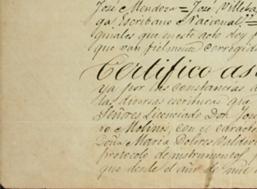 José Mendoza = José Villeba
ga, Escribano Nacional. =
iguales que en este acto doy f
que van fielmente corregida
Certifico as
ya por las constancias d
las diversas escrituras que
Señores Licenciado Don José
no Molina, con el caracter
Doña Maria Dolores Baldovi
protocolo de instrumentos p
que desde el año de mil